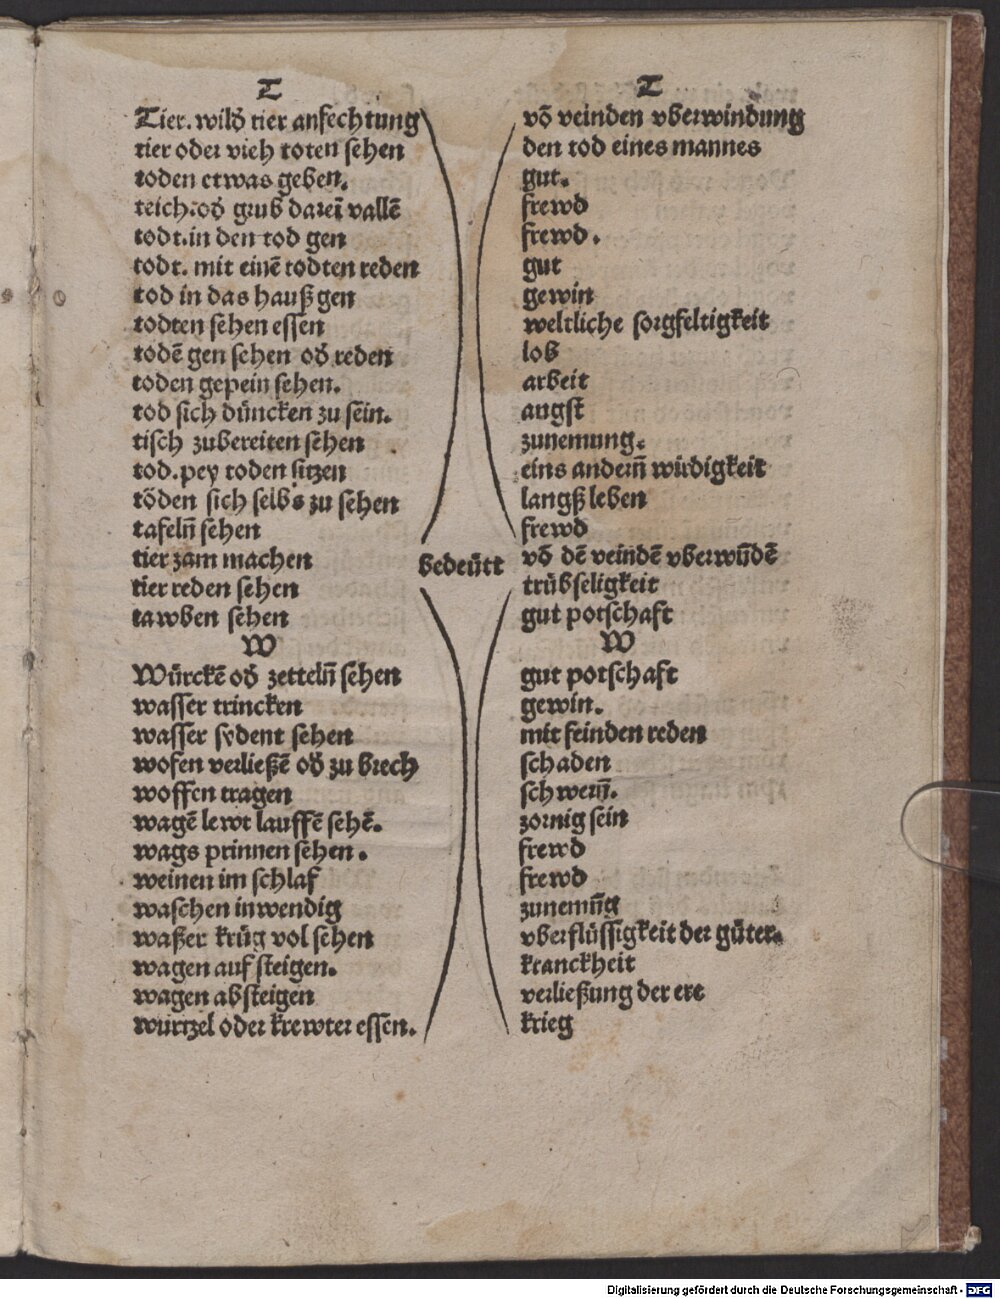 T
Tier. wild tier anfechtung
tier oder vieh toten sehen
toden etwas geben.
teich. od grub dareī vallē
todt. in den tod gen
todt. mit einē todten reden
tod in das hauß gen
todten sehen essen
todē gen sehen od reden
toden gepein sehen.
tod sich düncken zu sein.
tisch zubereiten sehen
tod. pey toden sitzen
töden sich selbs zu sehen
tafeln̄ sehen
tier zam machen
tier reden sehen
tawben sehen
W
Würckē od zetteln̄ sehen
wasser trincken
wasser sydent sehen
wofen verließē od zu brech
woffen tragen
wagē lewt lauffē sehē.
wags prinnen sehen.
weinen im schlaf
waschen inwendig
waßer krüg vol sehen
wagen auf steigen.
wagen absteigen
wurtzel oder krewter essen.
bedeütt
T
vō veinden vberwindung
den tod eines mannes
gut.
frewd
frewd.
gut
gewin
weltliche sorgfeltigkeit
lob
arbeit
angst
zunemung.
eins anderm̄ wirdigkeit
langß leben
frewd
vō dē veindē vberwūdē
trübseligkeit
gut potschaft
W
gut potschaft
gewin.
mit feinden reden
schaden
schwerm̄.
zornig sein
frewd
frewd
zunemūg
vberflüssigkeit der güter.
kranckheit
verließung der ere
krieg
Digitalisierung gefördert durch die Deutsche Forschungsgemeinschaft - DFG